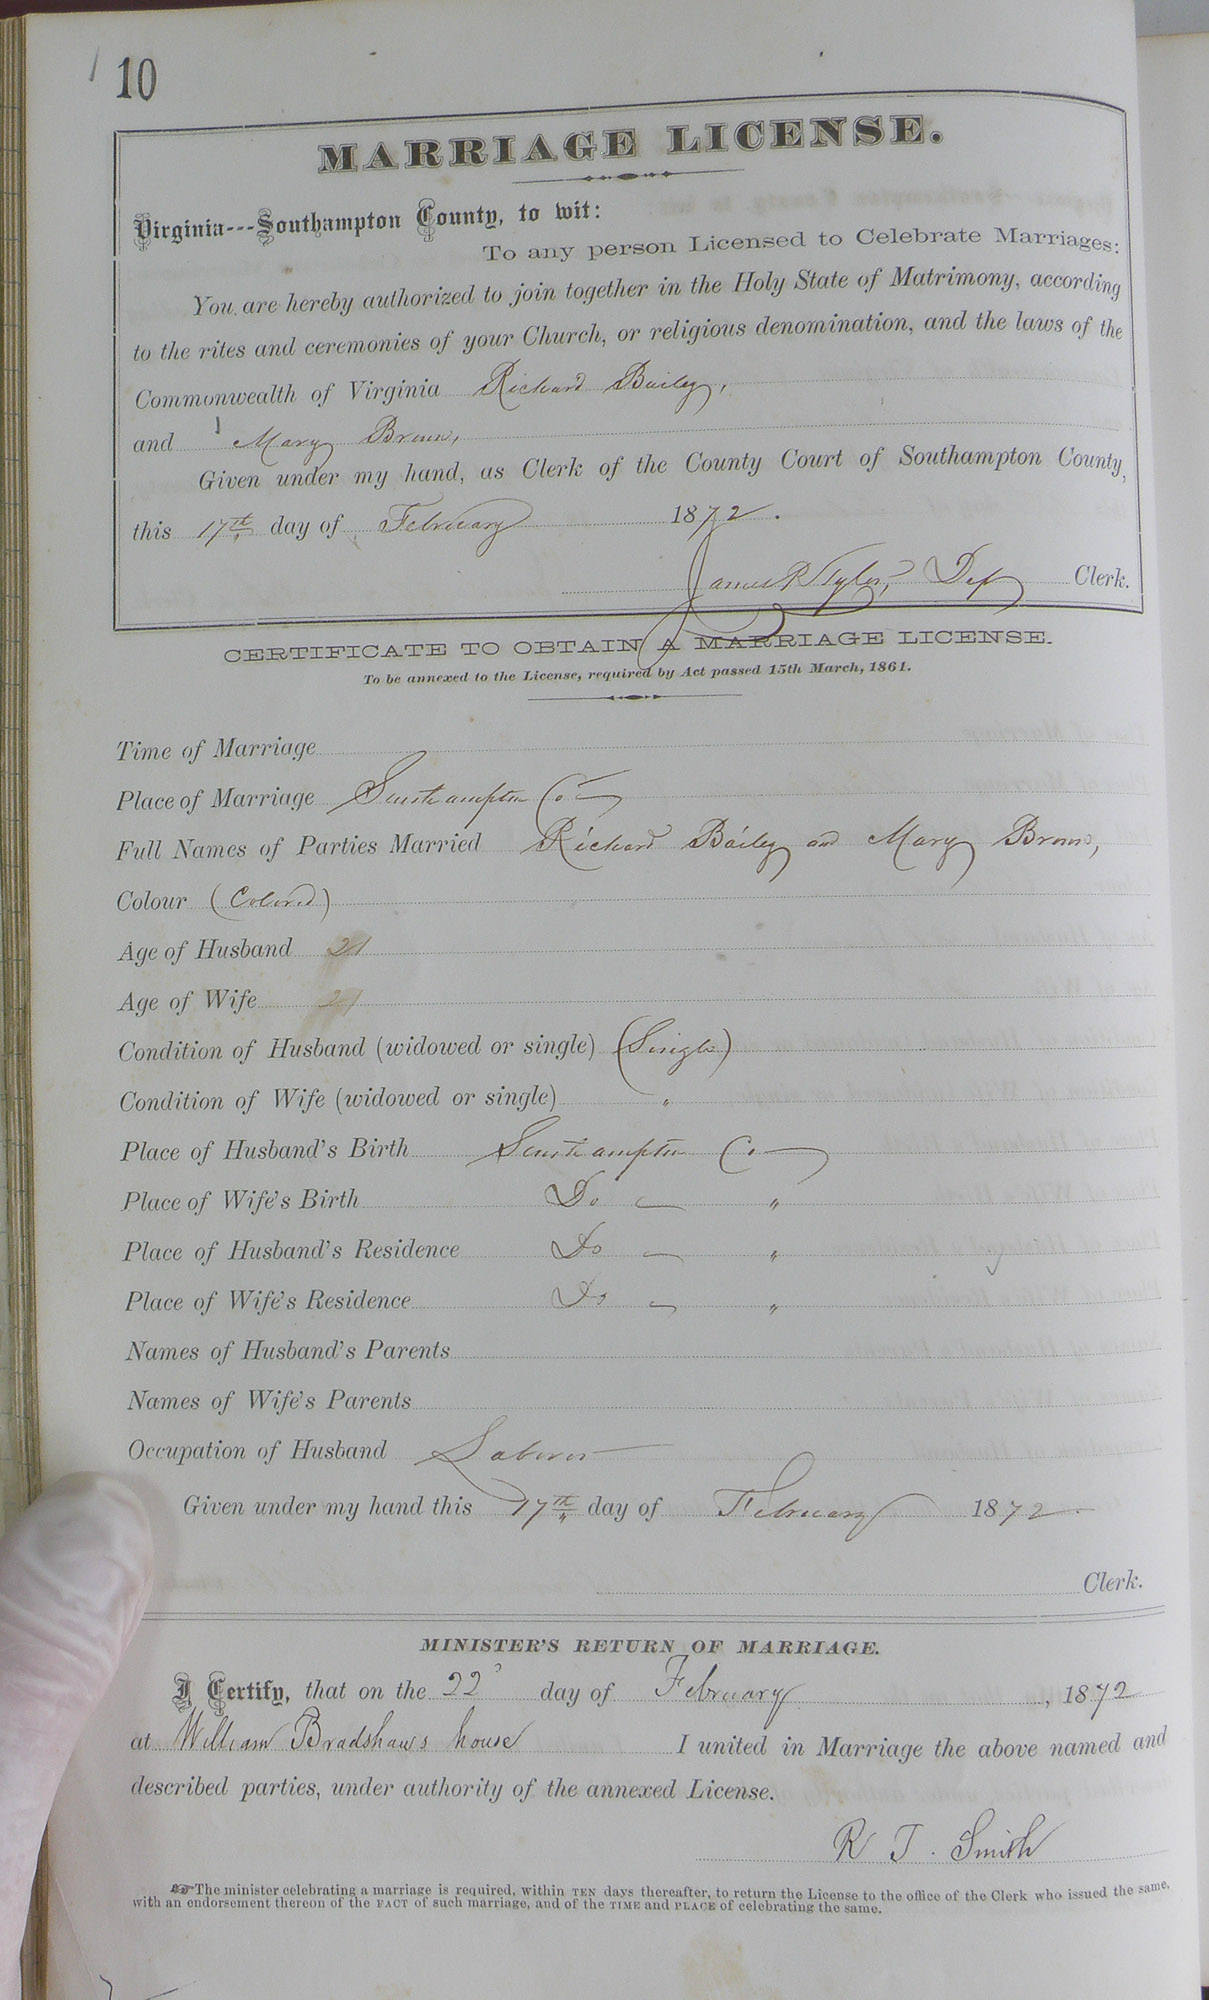 10
MARRIAGE LICENSE.
Virginia---Southampton County, to wit:
To any person Licensed to Celebrate Marriages:
You are hereby authorized to join together in the Holy State of Matrimony, according
to the rites and ceremonies of your Church, or religious denomination, and the laws of the
Commonwealth of Virginia Richard Bailey,
and Mary Brown,
Given under my hand, as Clerk of the County Court of Southampton County,
this 17th day of February 1872.
James R Tyler, Dep Clerk.
CERTIFICATE TO OBTAIN A MARRIAGE LICENSE.
To be annexed to the License, required by Act passed 15th March, 1861.
Time of Marriage
Place of Marriage Southampton Co
Full Names of Parties Married Richard Bailey and Mary Brown,
Colour (Colored)
Age of Husband 21
Age of Wife 21
Condition of Husband (widowed or single) (Single)
Condition of Wife (widowed or single) "
Place of Husband's Birth Southampton Co
Place of Wife's Birth Do "
Place of Husband's Residence Do "
Place of Wife's Residence Do "
Names of Husband's Parents
Names of Wife's Parents
Occupation of Husband Laborer
Given under my hand this 17th day of February 1872
Clerk.
MINISTER'S RETURN OF MARRIAGE.
I Certify, that on the 22d day of February, 1872
at William Bradshaws house I united in Marriage the above named and
described parties, under authority of the annexed License.
R T. Smith
☞The minister celebrating a marriage is required, within TEN days thereafter, to return the License to the office of the Clerk who issued the same,
with an endorsement thereon of the FACT of such marriage, and of the TIME and PLACE of celebrating the same.